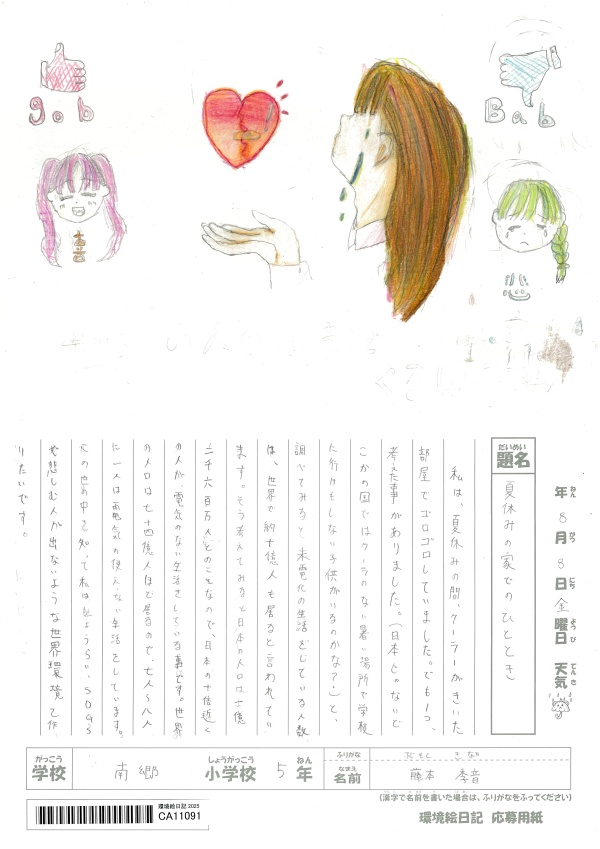 gob
Bab
喜
心
だいめい
題名
夏休みの家でのひととき
ねん
年
8
がつ
月
8
にち
日
金
ようび
曜日
てんき
天気
私は、夏休みの間、クーラーがきいた
部屋でゴロゴロしていました。でも1つ、
考えた事がありました。(日本じゃないど
こかの国ではクーラのない暑い場所で学校
に行けもしない子供がいるのかな?)と、
調べてみると未電化の生活をしている人数
は、世界で約十億人も居ると言われてい
ます。そう考えてみると日本の人口は一億
二千六百万人とのことなので、日本の十倍近く
の人が、電気のない生活をしている事です。世界
の人口は七十四億人ほど居るので、七人〜八人
に一人は電気の使えない生活をしています。
元の世の中を知って私はしょうらい、SDGs
で悲しむ人が出ないような世界環境を作
りたいです。
がっこう
学校
南郷
しょうがっこう
小学校
5
ねん
年
ふりがな
ふじもと
なまえ
名前
藤本 季音
(漢字で名前を書いた場合は、ふりがなをふってください)
環境絵日記 2025
CA11091
環境絵日記 応募用紙